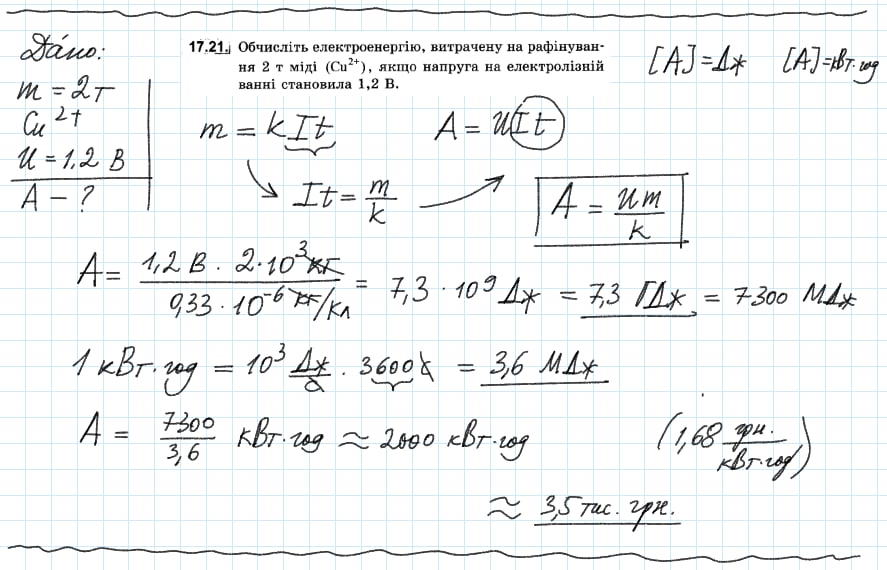 Дано:
m = 2т
Cu²⁺
U = 1,2 В
A – ?
17.21. Обчисліть електроенергію, витрачену на рафінуван-
ня 2 т міді (Cu²⁺), якщо напруга на електролізній
ванні становила 1,2 В.
[A] = Дж [A] = кВт·год
m = kIt A = UIt
It = m/k A = Um/k
A = 1,2 В · 2·10³ кг / 0,33 · 10⁻⁶ кг/Кл = 7,3 · 10⁹ Дж = 7,3 ГДж = 7300 МДж
1 кВт·год = 10³ Дж/с · 3600 с = 3,6 МДж
A = 7300/3,6 кВт·год ≈ 2000 кВт·год (1,68 грн./кВт·год)
≈ 3,5 тис. грн.